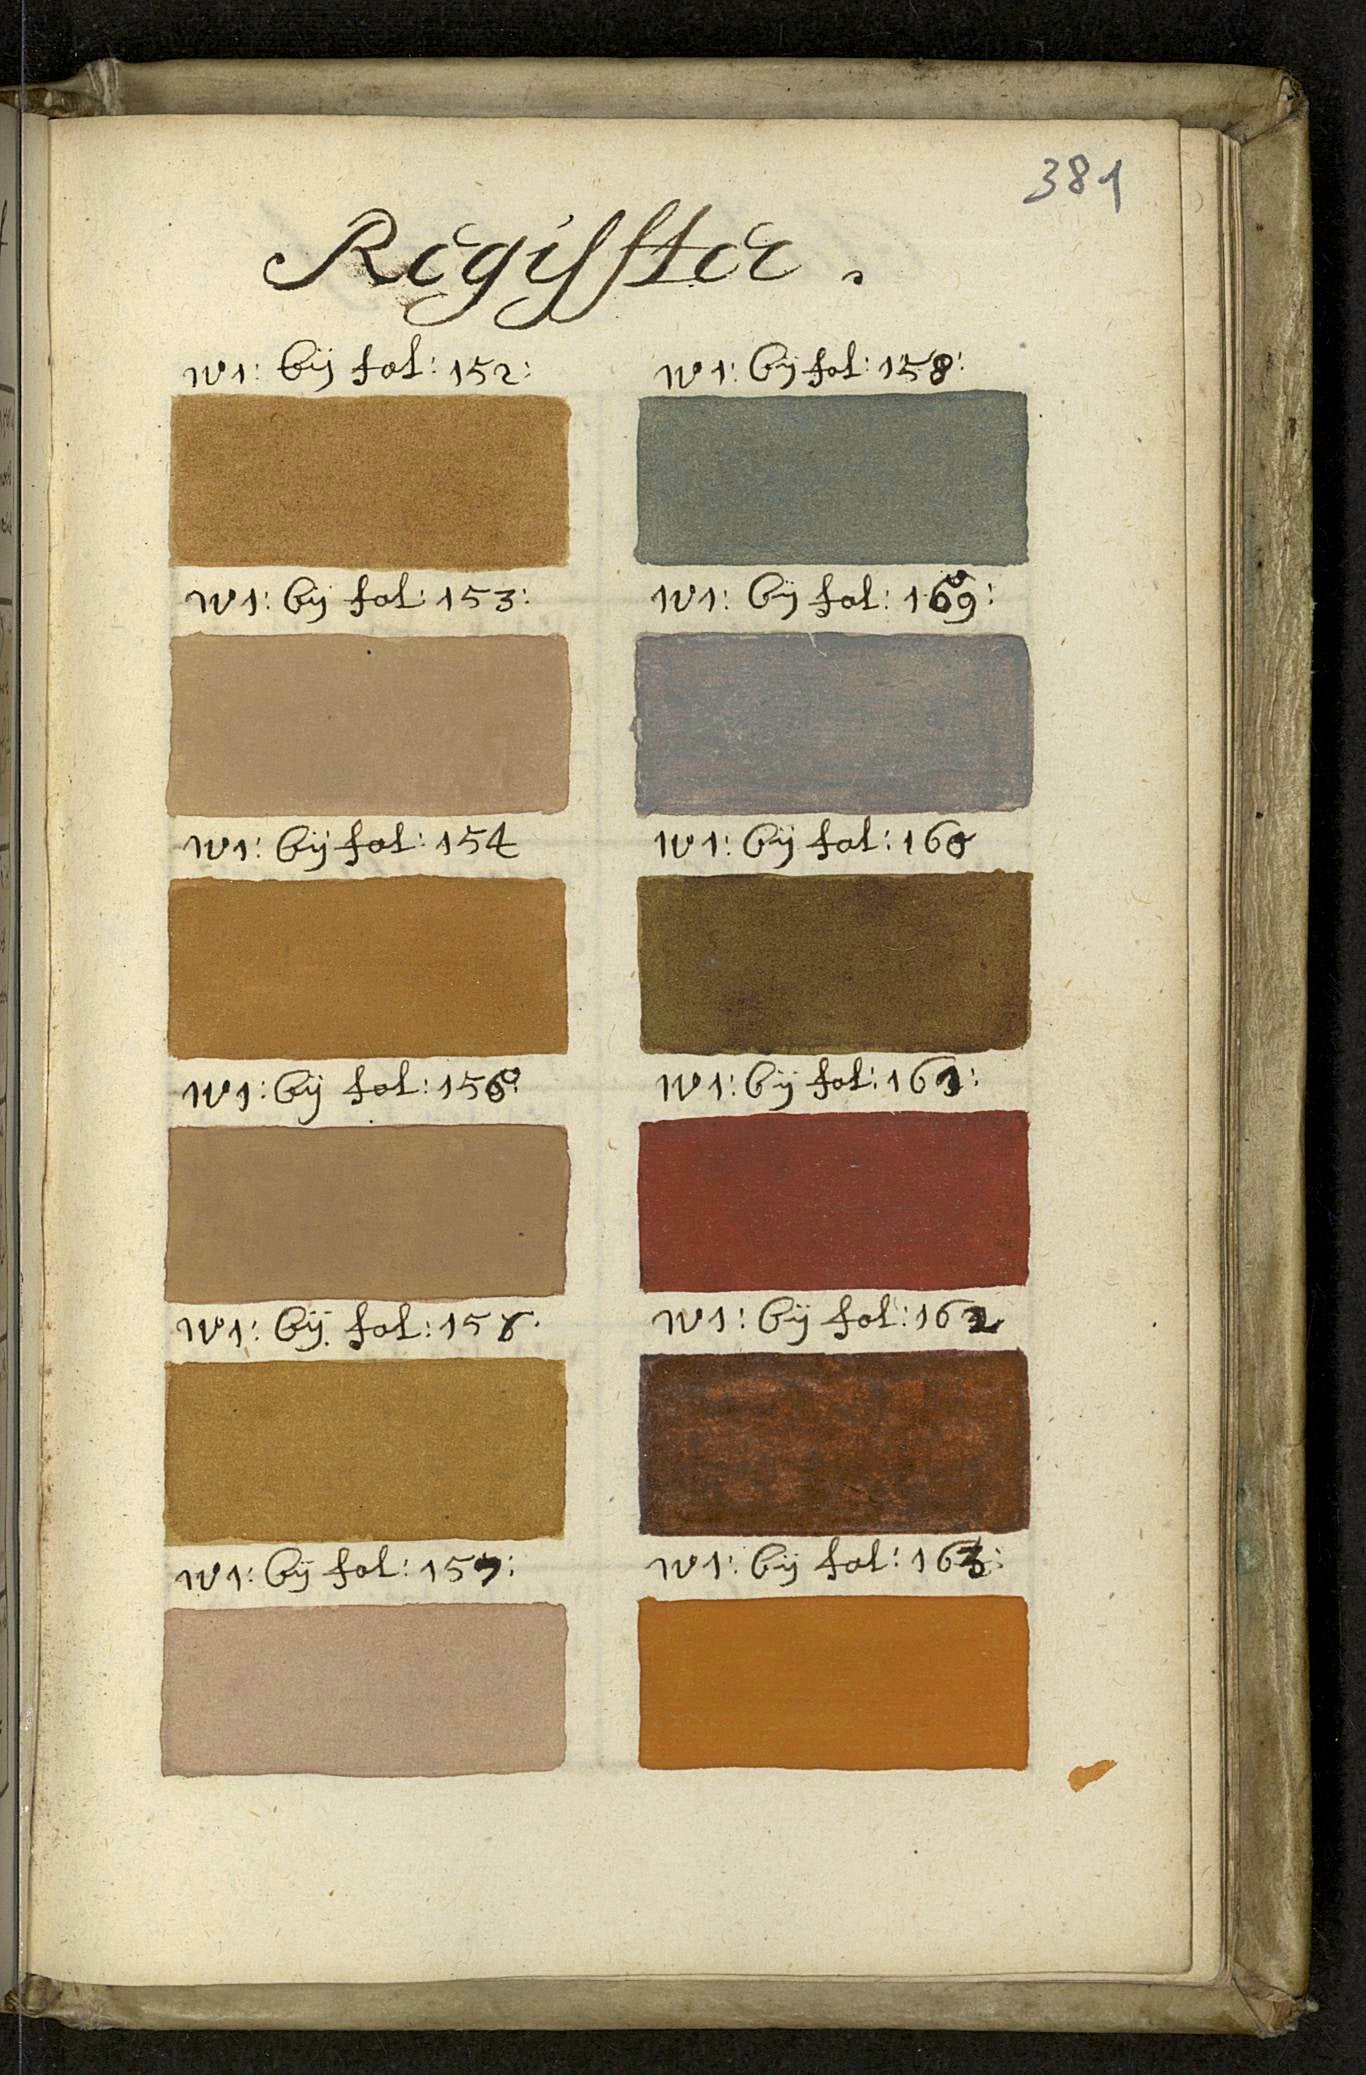 381
Regisster.
N1: bÿ fol: 152:
N1: bÿ fol: 153:
N1: bÿ fol: 154
N1: bÿ fol: 156:
N1: bÿ fol: 158.
N1: bÿ fol: 157:
N1: bÿ fol: 158:
N1: bÿ fol: 169:
N1: bÿ fol: 160
N1: bÿ fol: 161:
N1: bÿ fol: 162
N1: bÿ fol: 163: